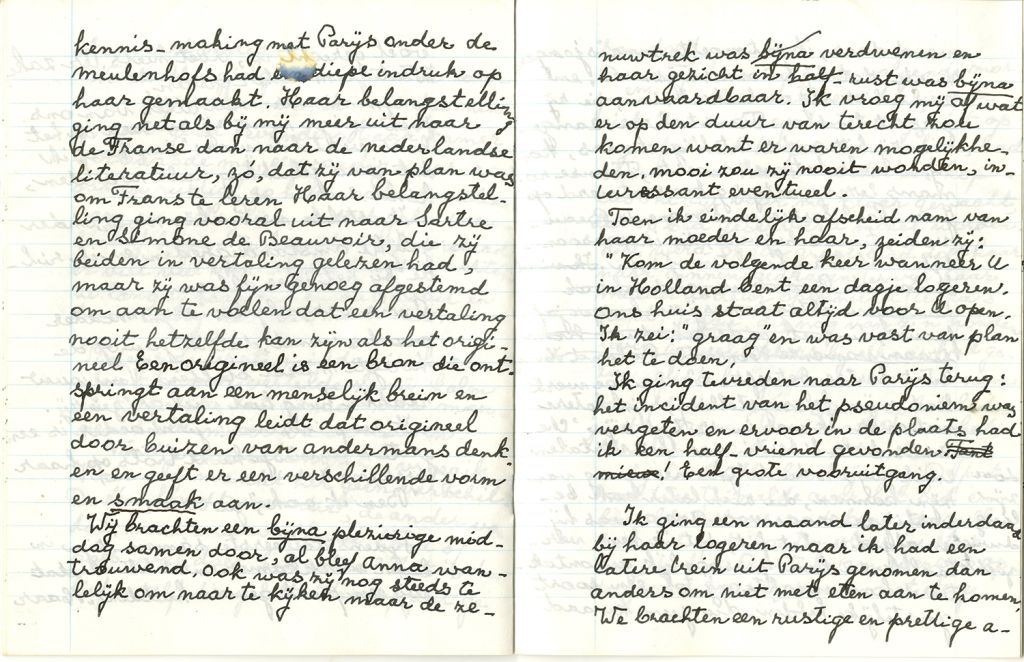 kennis-making met Parijs onder de
meulenhofs had diepe indruk op
haar gemaakt. Haar belangstelling
ging net als bij mij meer uit naar
de Franse dan naar de nederlandse
literatuur, zó, dat zij van plan was
om Frans te leren Haar belangstel-
ling ging vooral uit naar Sartre
en Simone de Beauvoir, die zij
beiden in vertaling gelezen had,
maar zij was fijn genoeg afgestemd
om aan te voelen dat een vertaling
nooit hetzelfde kan zijn als het origi-
neel Een origineel is een bron die ont-
springt aan een menselijk brein en
een vertaling leidt dat origineel
door buizen van andermans denk-
en en geeft er een verschillende vorm
en smaak aan.
Wij brachten een bijna plezierige mid-
dag samen door, al bleef Anna wan-
trouwend. Ook was zij nog steeds te
lelijk om naar te kijken maar de ze-
nuwtrek was bijna verdwenen en
haar gezicht in half-rust was bijna
aanvaardbaar. Ik vroeg mij af wat
er op den duur van terecht zou
komen want er waren mogelijkhe-
den. mooi zou zij nooit worden, in-
teressant eventueel.
Toen ik eindelijk afscheid nam van
haar moeder en haar, zeiden zij:
"Kom de volgende keer wanneer U
in Holland bent een dagje logeren.
Ons huis staat altijd voor U open.
Ik zei: "graag" en was vast van plan
het te doen.
Ik ging tevreden naar Parijs terug:
het incident van het pseudoniem was
vergeten en ervoor in de plaats had
ik een half-vriend gevonden.
! Een grote vooruitgang.
Ik ging een maand later inderdaad
bij haar logeren maar ik had een
latere trein uit Parijs genomen dan
anders om niet met eten aan te komen.
We brachten een rustige en prettige a-